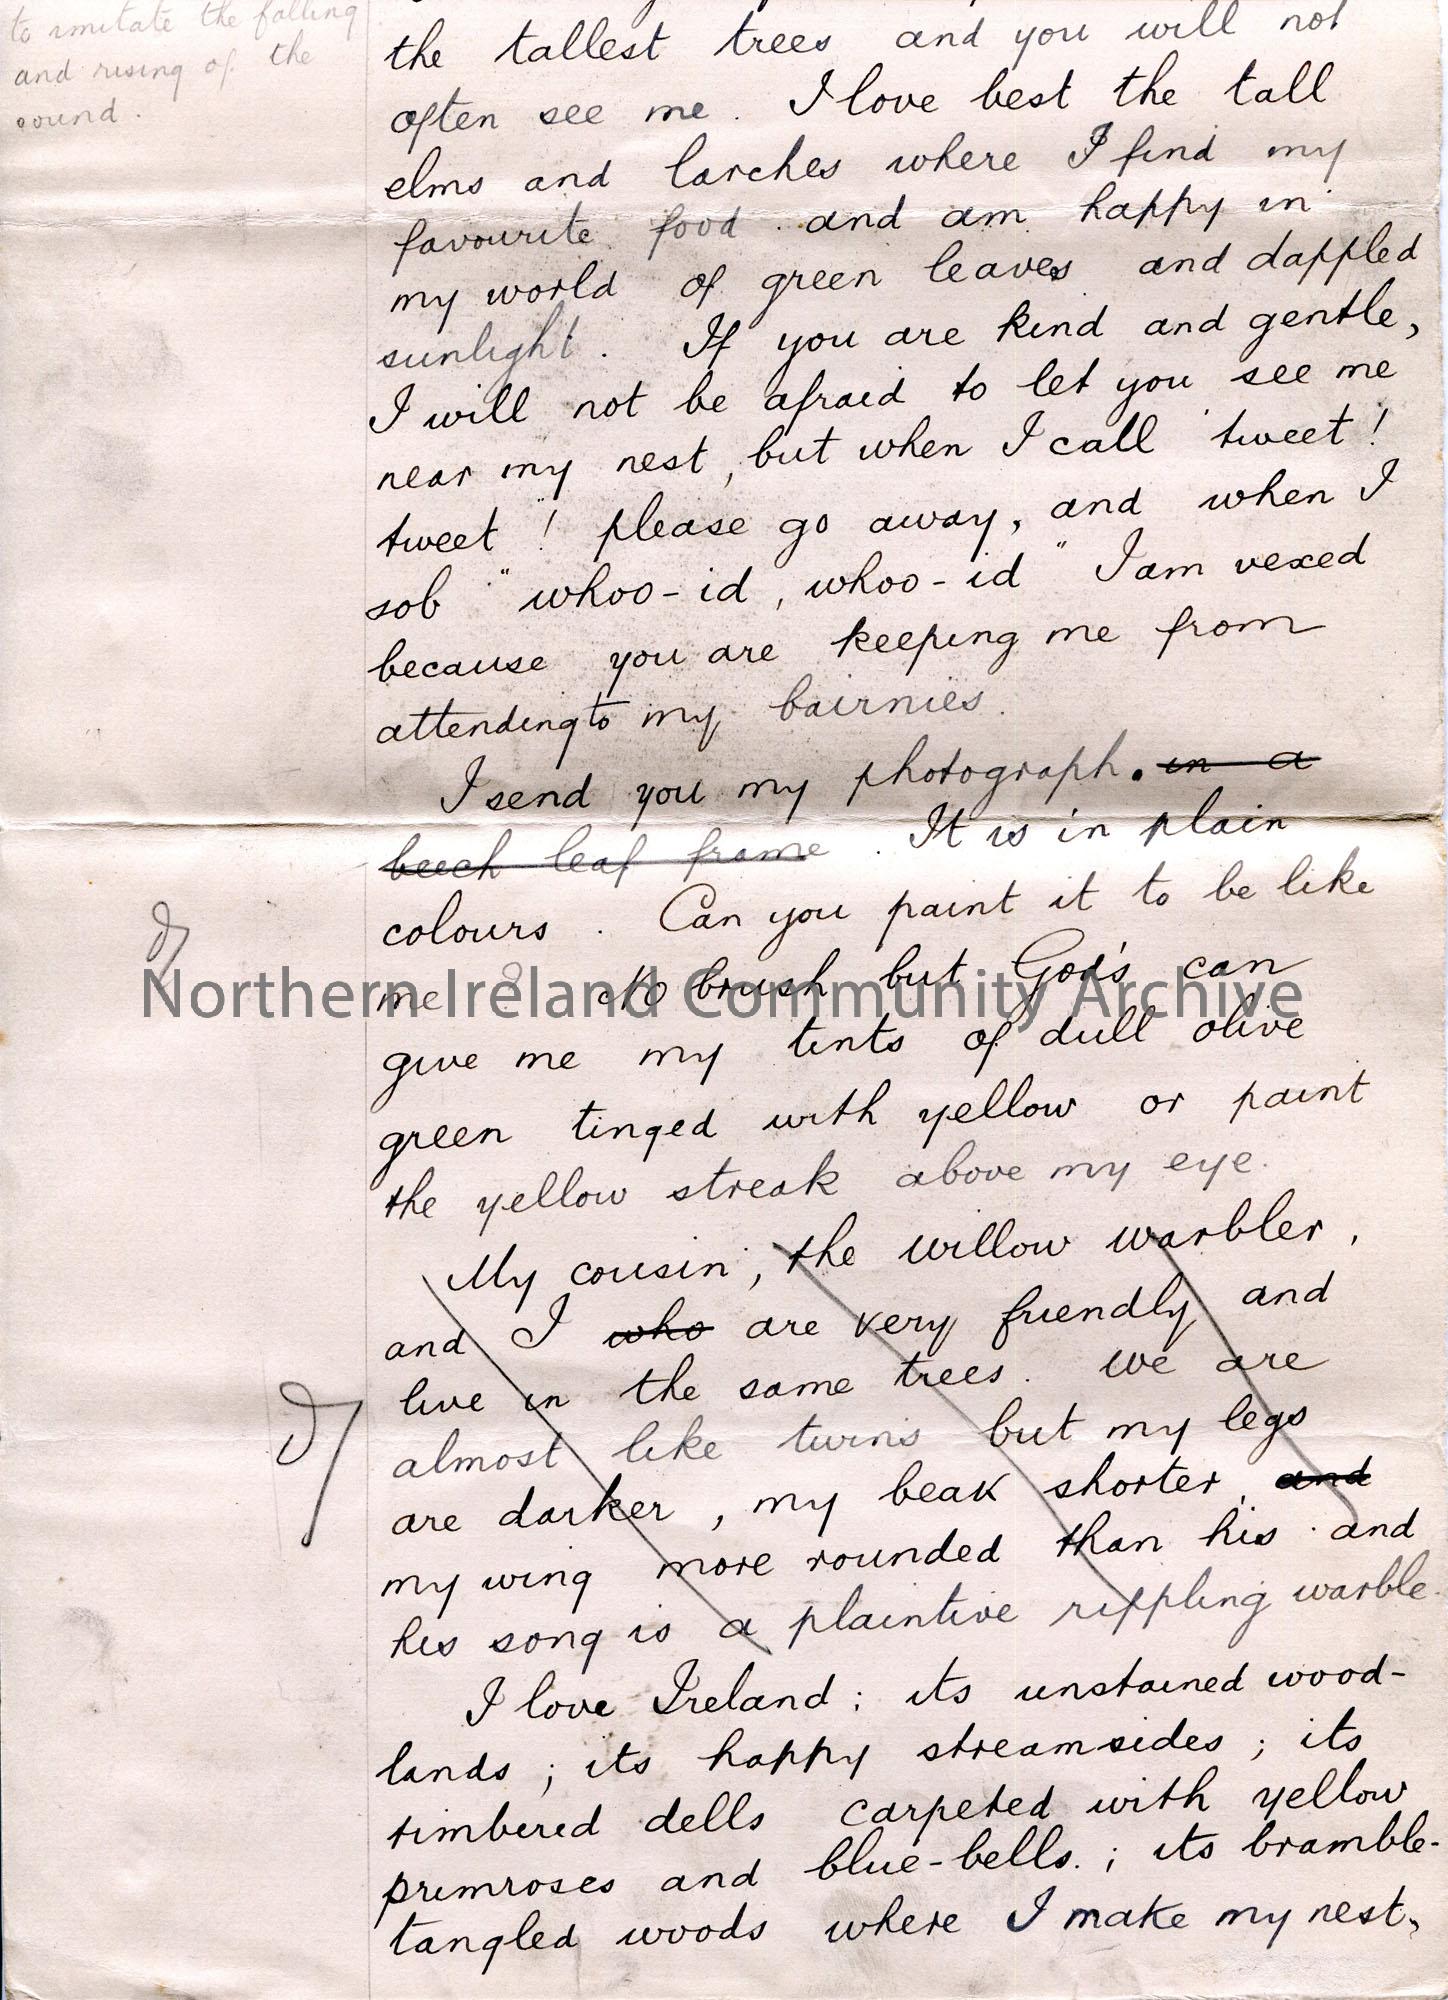 to imitate the falling
and rising of the
sound.
the tallest trees and you will not
often see me. I love best the tall
elms and larches where I find my
favourite food and am happy in
my world of green leaves and dappled
sunlight. If you are kind and gentle,
I will not be afraid to let you see me
near my nest, but when I call tweet!
tweet! please go away, and when I
sob "whoo-id, whoo-id" I am vexed
because you are keeping me from
attending to my bairnies.
I send you my photograph. in a
beech leaf frame. It is in plain
colours. Can you paint it to be like
me? No brush but God's can
Northern Ireland Community Archive
give me my tints of dull olive
green tinged with yellow or paint
the yellow streak above my eye.
My cousin, the willow warbler,
and I who are very friendly and
live in the same trees. We are
almost like twins but my legs
are darker, my beak shorter, and
my wing more rounded than his and
his song is a plaintive rippling warble.
I love Ireland; its unstained wood-
lands; its happy streamsides; its
timbered dells carpeted with yellow
primroses and blue-bells.; its bramble-
tangled woods where I make my nest,